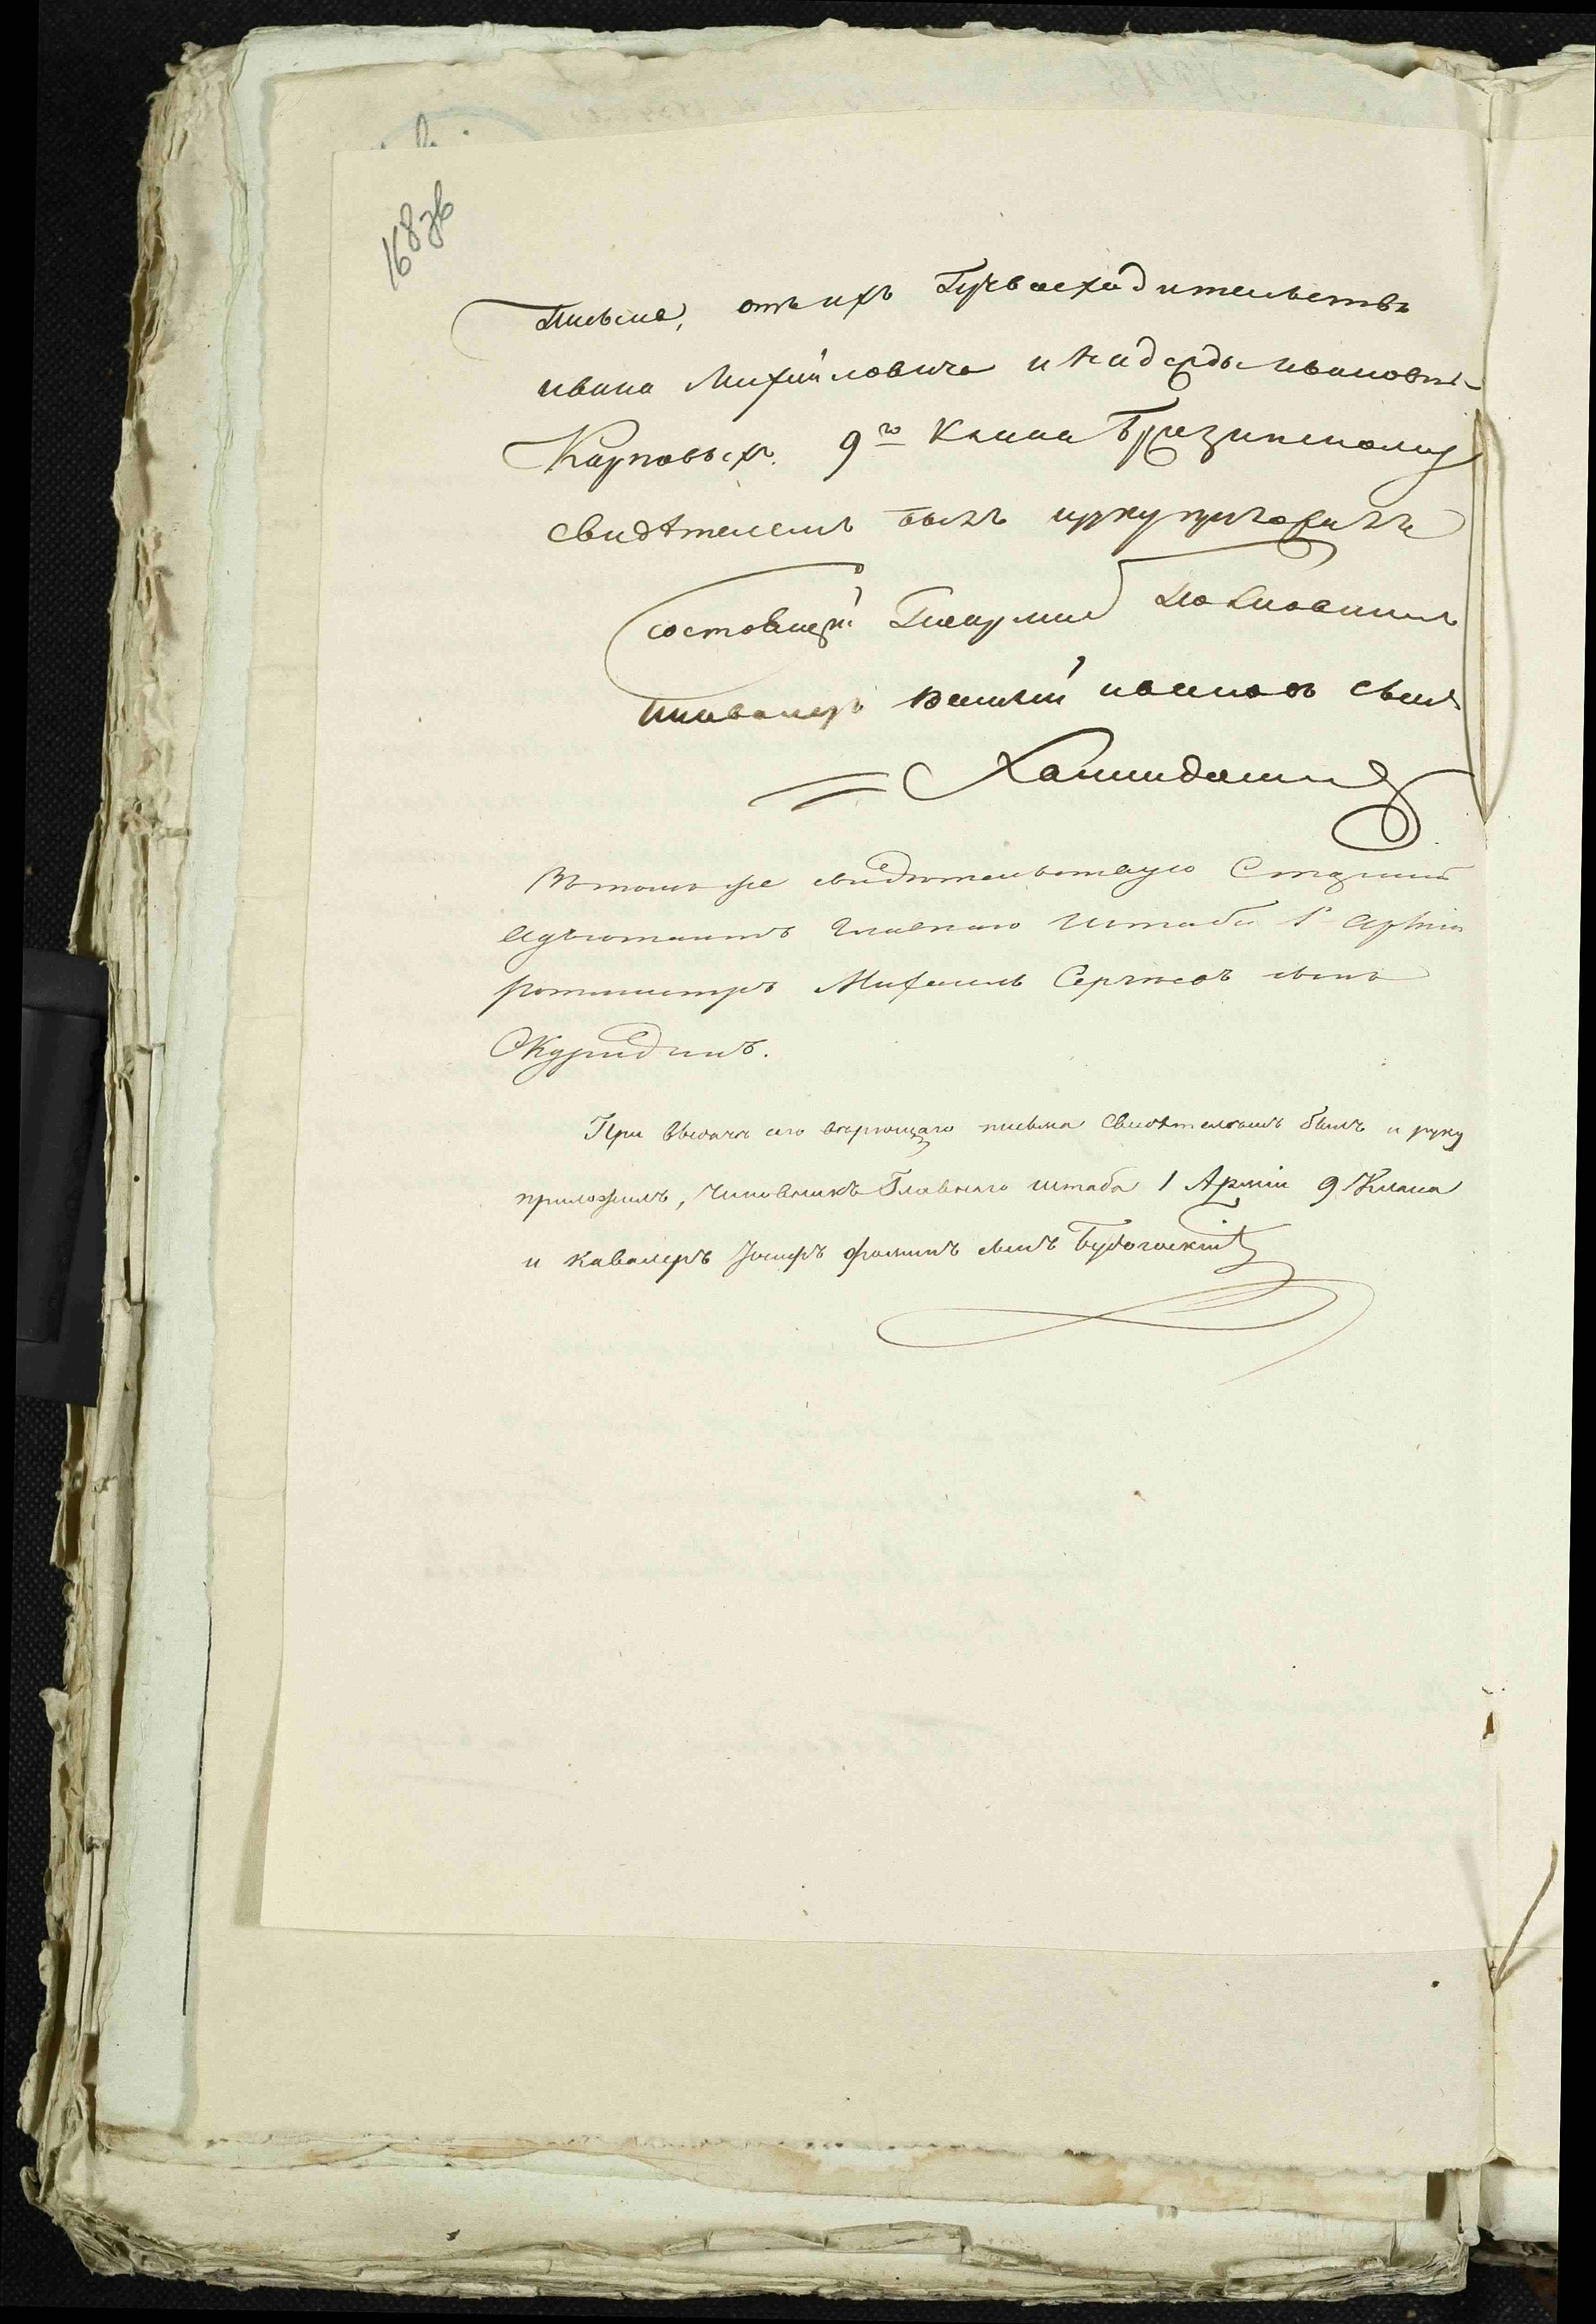 168 зв
письма, отъ ихъ Превосходительствъ
ивана Михайловича и надежды ивановны
Карповыхъ. 9го класса
свидѣтелемъ былъ и руку приложилъ
состоящій Поарміи Полковникъ
икавалеръ Василій ивановъ сынъ
Втомъ же свидѣтельствую Старшій
Адъютантъ Главнаго Штаба 1й Арміи
ротмистръ Михаилъ Сергѣевъ сынъ
При выдачѣ сего вѣрющаго письма свидѣтелемъ былъ и руку
приложилъ, Чиновникъ Главнаго штаба 1 Арміи 9 Класа
и кавалеръ Іосифъ Фоминъ сынъ Будогоскій